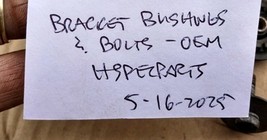 BRACKET BUSHINGS
& BOLTS - OEM
HSPEZPARTS
5-16-2025